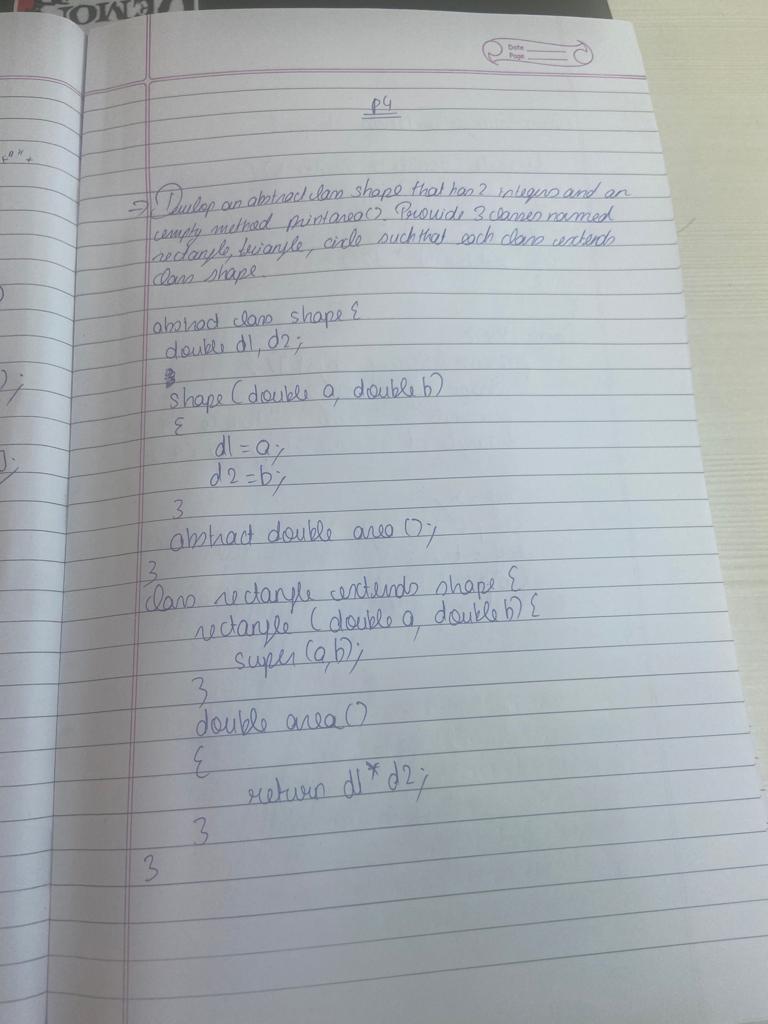 Date
Page
P4
⇒ Develop an abstract class shape that has 2 integers and an
empty method printarea(). Provide 3 classes named
rectangle, triangle, circle such that each class extends
class shape.
abstract class shape {
double d1, d2;
shape (double a, double b)
{
d1 = a;
d2 = b;
}
abstract double area ();
}
class rectangle extends shape {
rectangle (double a, double b) {
super (a,b);
}
double area ()
{
return d1 * d2;
}
}